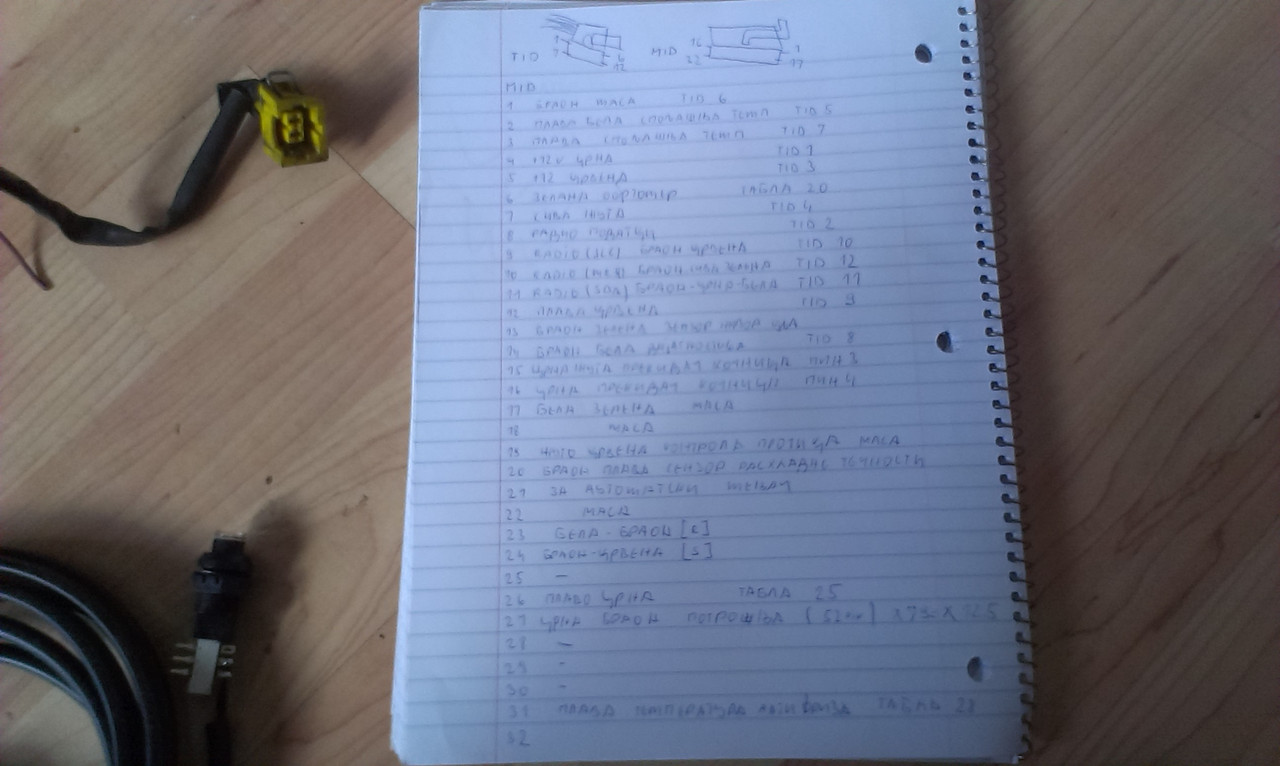 TID 1 7 6 12 MID 16 32 1 17
MID
1 БРАОН МАСА TID 6
2 ПЛАВА БЕЛА СПОЉАШЊА ТЕМП TID 5
3 ПЛАВА СПОЉАШЊА ТЕМП TID 7
4 +12V ЦРНА TID 1
5 +12 ЦРВЕНА TID 3
6 ЗЕЛЕНА ОБРТОМЕР ТАБЛА 20
7 СИВА ЖУТА TID 4
8 РАДИО ПОДАТЦИ TID 2
9 RADIO (SCL) БРАОН ЦРВЕНА TID 10
10 RADIO БРАОН TID 12
11 RADIO (SDA) БРАОН-ЦРНА-БЕЛА TID 11
12 ПЛАВА ЦРВЕНА TID 9
13 БРАОН ЗЕЛЕНА
14 БРАОН БЕЛА ДИЈАГНОСТИКА TID 8
15 ЦРНА ЖУТА ПРЕКИДАЧ КОЧНИЦА ПИН 3
16 ЦРНА ПРЕКИДАЧ КОЧНИЦА ПИН 4
17 БЕЛА ЗЕЛЕНА МАСА
18 МАСА
19 ЖУТО ЦРВЕНА КОНТРОЛА МАСА
20 БРАОН ПЛАВА СЕНЗОР РАСХЛАДНЕ ТЕЧНОСТИ
21 ЗА АУТОМАТСКИ МЕЊАЧ
22 МАСА
23 БЕЛА-БРАОН [R]
24 БРАОН-ЦРВЕНА [S]
25 –
26 ПЛАВО ЦРНА ТАБЛА 25
27 ЦРНА БРАОН ПОТРОШЊА
28 –
29 -
30 -
31 ПЛАВА ТЕМПЕРАТУРА ТАБЛА
32